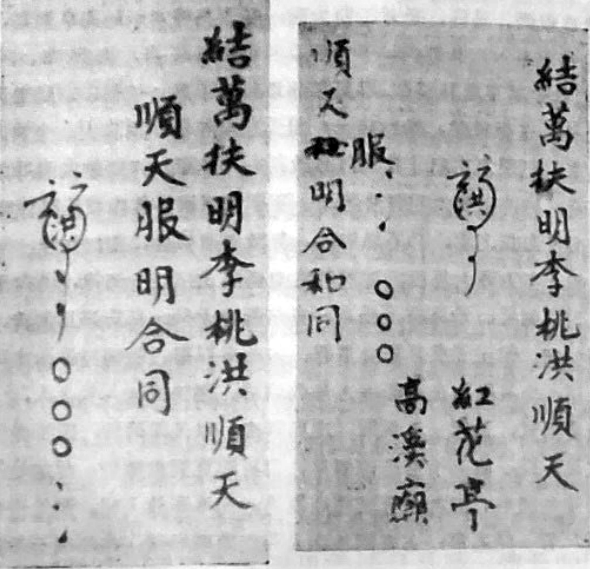 結萬扶明李桃洪順天
紅花亭
高溪廟
服∴○○○
順天明合和同
結萬扶明李桃洪順天
順天服明合同
○○○∴